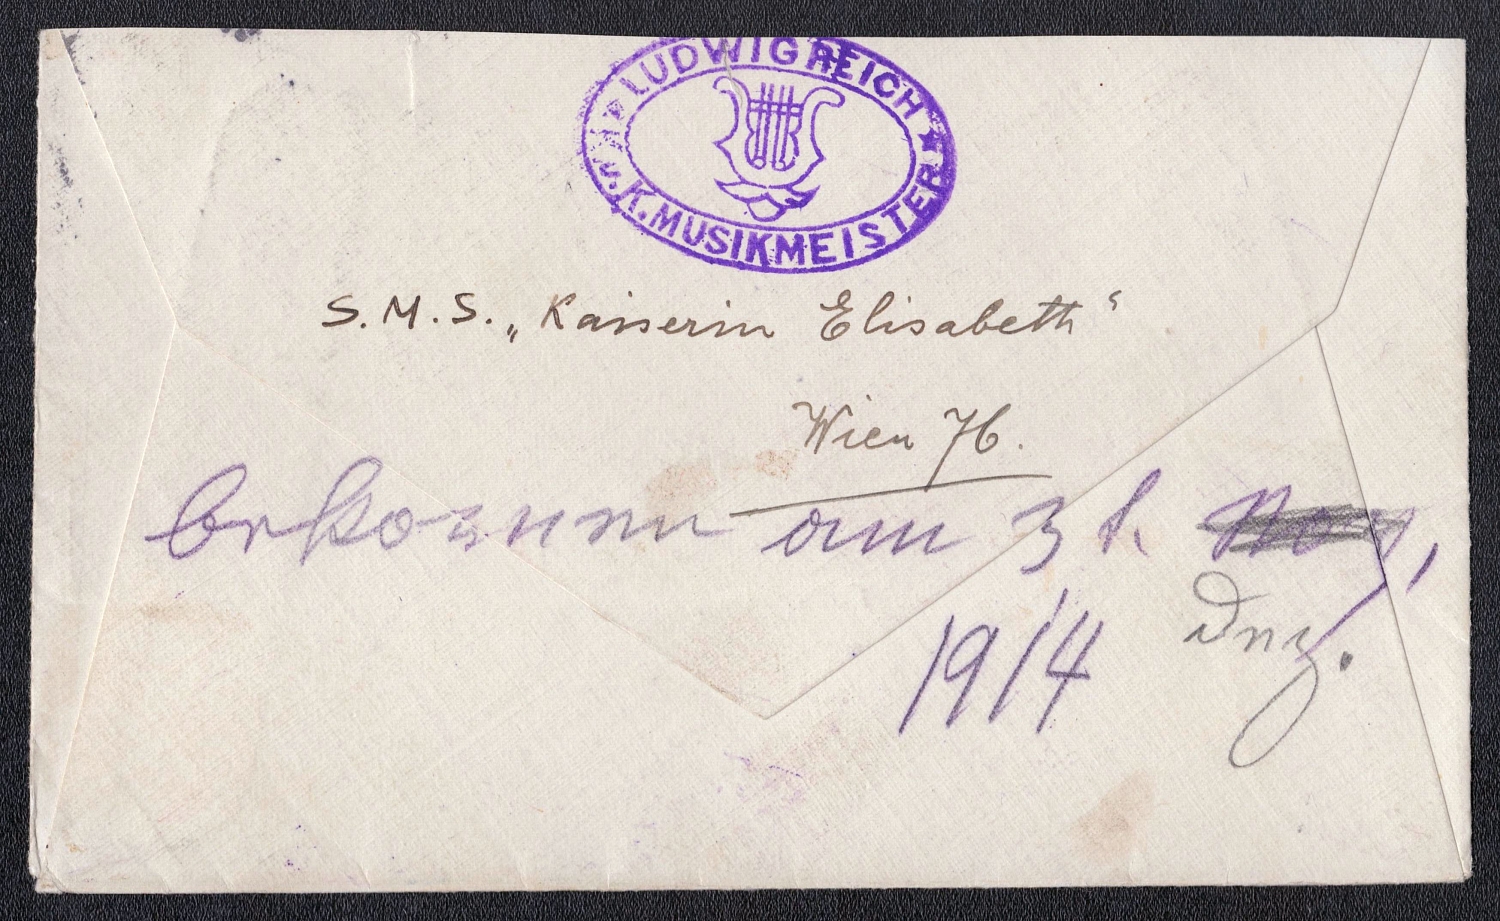 LUDWIG REICH
K. MUSIKMEISTER
S.M.S. „Kaiserin Elisabeth“
Wien 76.
am 31. Nov,
Dez.
1914